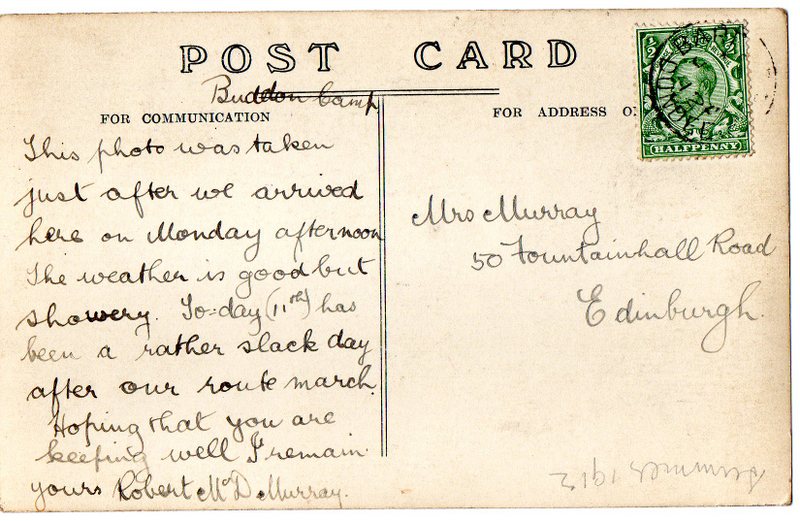 POST CARD
Buddon Camp
FOR COMMUNICATION
This photo was taken
just after we arrived
here on Monday afternoon
The weather is good but
showery. To-day (11th) has
been a rather slack day
after our route march.
Hoping that you are
keeping well I remain
yours Robert McD Murray.
FOR ADDRESS O
½ ½
HALFPENNY
Mrs Murray
50 Fountainhall Road
Edinburgh.
Summer 1912